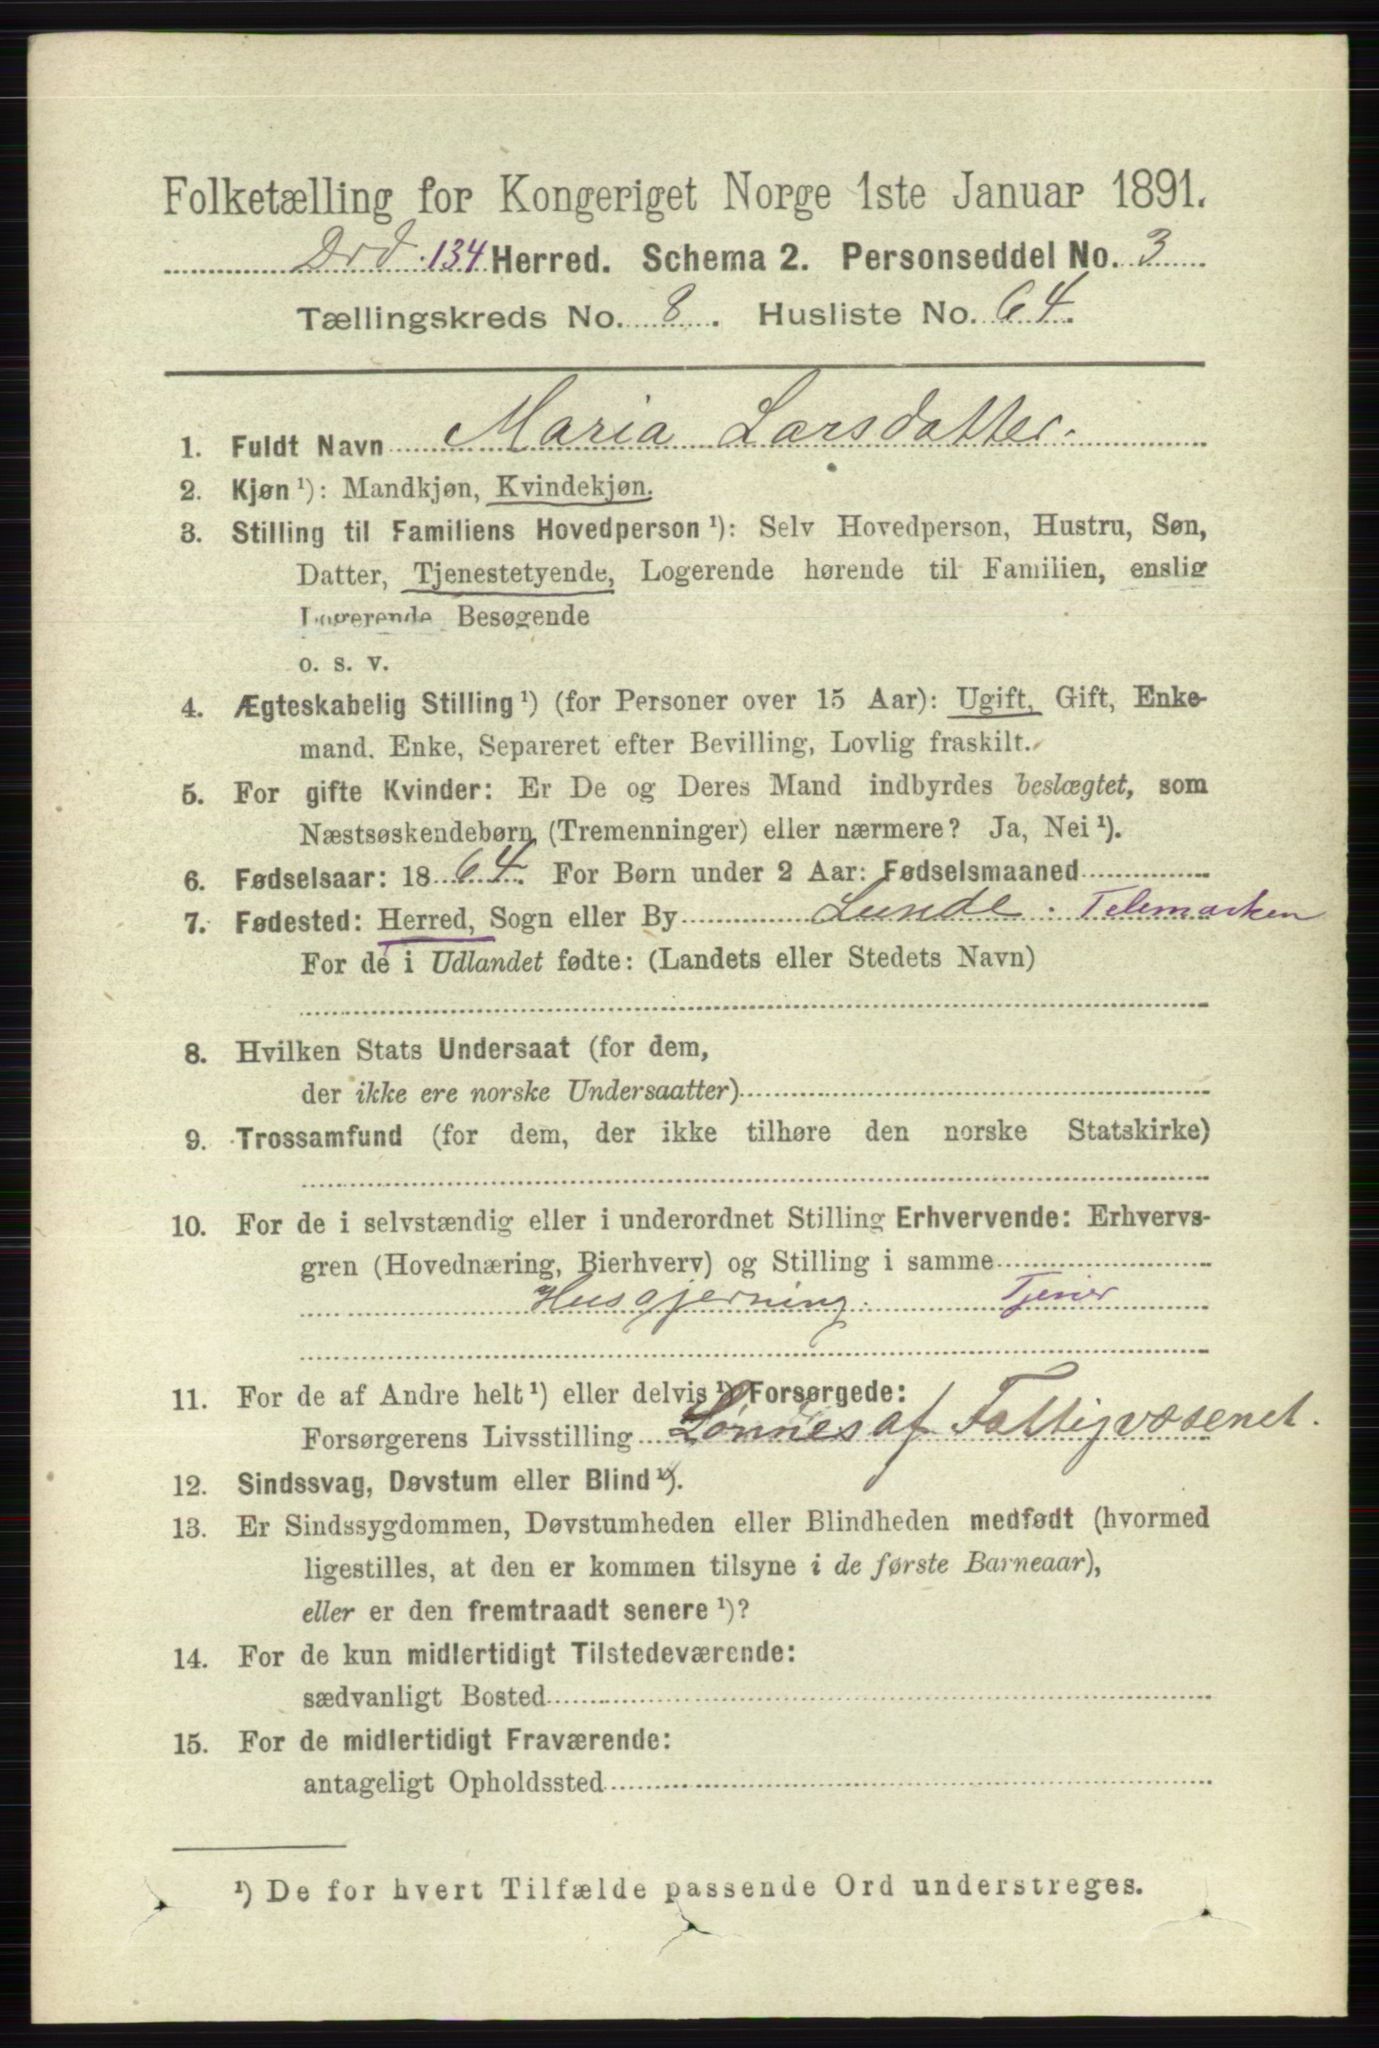 Folketælling for Kongeriget Norge 1ste Januar 1891.
134 Herred. Schema 2. Personseddel No. 3
Tællingskreds No. 8. Husliste No. 64.
1. Fuldt Navn Maria Larsdatter.
2. Kjøn ¹): Mandkjøn, Kvindekjøn.
3. Stilling til Familiens Hovedperson ¹): Selv Hovedperson, Hustru, Søn,
Datter, Tjenestetyende, Logerende hørende til Familien, enslig
Logerende Besøgende
o. s. v.
4. Ægteskabelig Stilling ¹) (for Personer over 15 Aar): Ugift, Gift, Enke-
mand. Enke, Separeret efter Bevilling, Lovlig fraskilt.
5. For gifte Kvinder: Er De og Deres Mand indbyrdes beslægtet, som
Næstsøskendebørn (Tremenninger) eller nærmere? Ja, Nei ¹).
6. Fødselsaar: 1864. For Børn under 2 Aar: Fødselsmaaned
7. Fødested: Herred, Sogn eller By Lunde. Telemarken
For de i Udlandet fødte: (Landets eller Stedets Navn)
8. Hvilken Stats Undersaat (for dem,
der ikke ere norske Undersaatter)
9. Trossamfund (for dem, der ikke tilhøre den norske Statskirke)
10. For de i selvstændig eller i underordnet Stilling Erhvervende: Erhvervs-
gren (Hovednæring, Bierhverv) og Stilling i samme
Husgjerning. Tjener
11. For de af Andre helt ¹) eller delvis ¹) Forsørgede:
Forsørgerens Livsstilling Lønnes af Fattigvæsenet.
12. Sindssvag, Døvstum eller Blind ¹).
13. Er Sindssygdommen, Døvstumheden eller Blindheden medfødt (hvormed
ligestilles, at den er kommen tilsyne i de første Barneaar),
eller er den fremtraadt senere ¹)?
14. For de kun midlertidigt Tilstedeværende:
sædvanligt Bosted
15. For de midlertidigt Fraværende:
antageligt Opholdssted
¹) De for hvert Tilfælde passende Ord understreges.